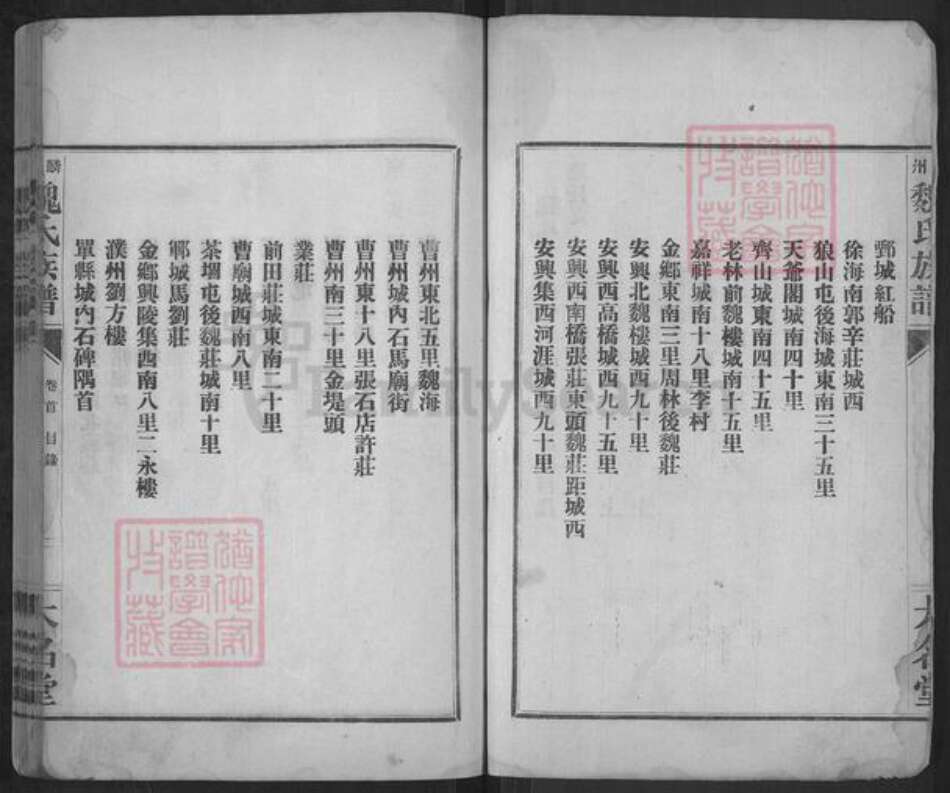 魏氏族譜
鄄城紅船
徐海南郭辛莊城西
狼山屯後海城東南三十五里
天爺閣城南四十里
齊山城東南四十五里
老林前魏樓城南十五里
嘉祥城南十八里李村
金鄉東南三里周林後魏莊
安興北魏樓城西九十里
安興西高橋城西九十五里
安興西南橋張莊東頭魏莊距城西
安興集西河涯城西九十里
大名堂
曹州東北五里魏海
曹州城內石馬廟街
曹州東十八里張石店許莊
曹州南三十里金堤頭
業莊
前田莊城東南二十里
曹廟城西南八里
茶堌屯後魏莊城南十里
鄆城馬劉莊
金鄉興陵集西南八里二永樓
濮州劉方樓
單縣城內石碑隅首
魏氏族譜
卷首 目錄
大名堂
FamilySearch